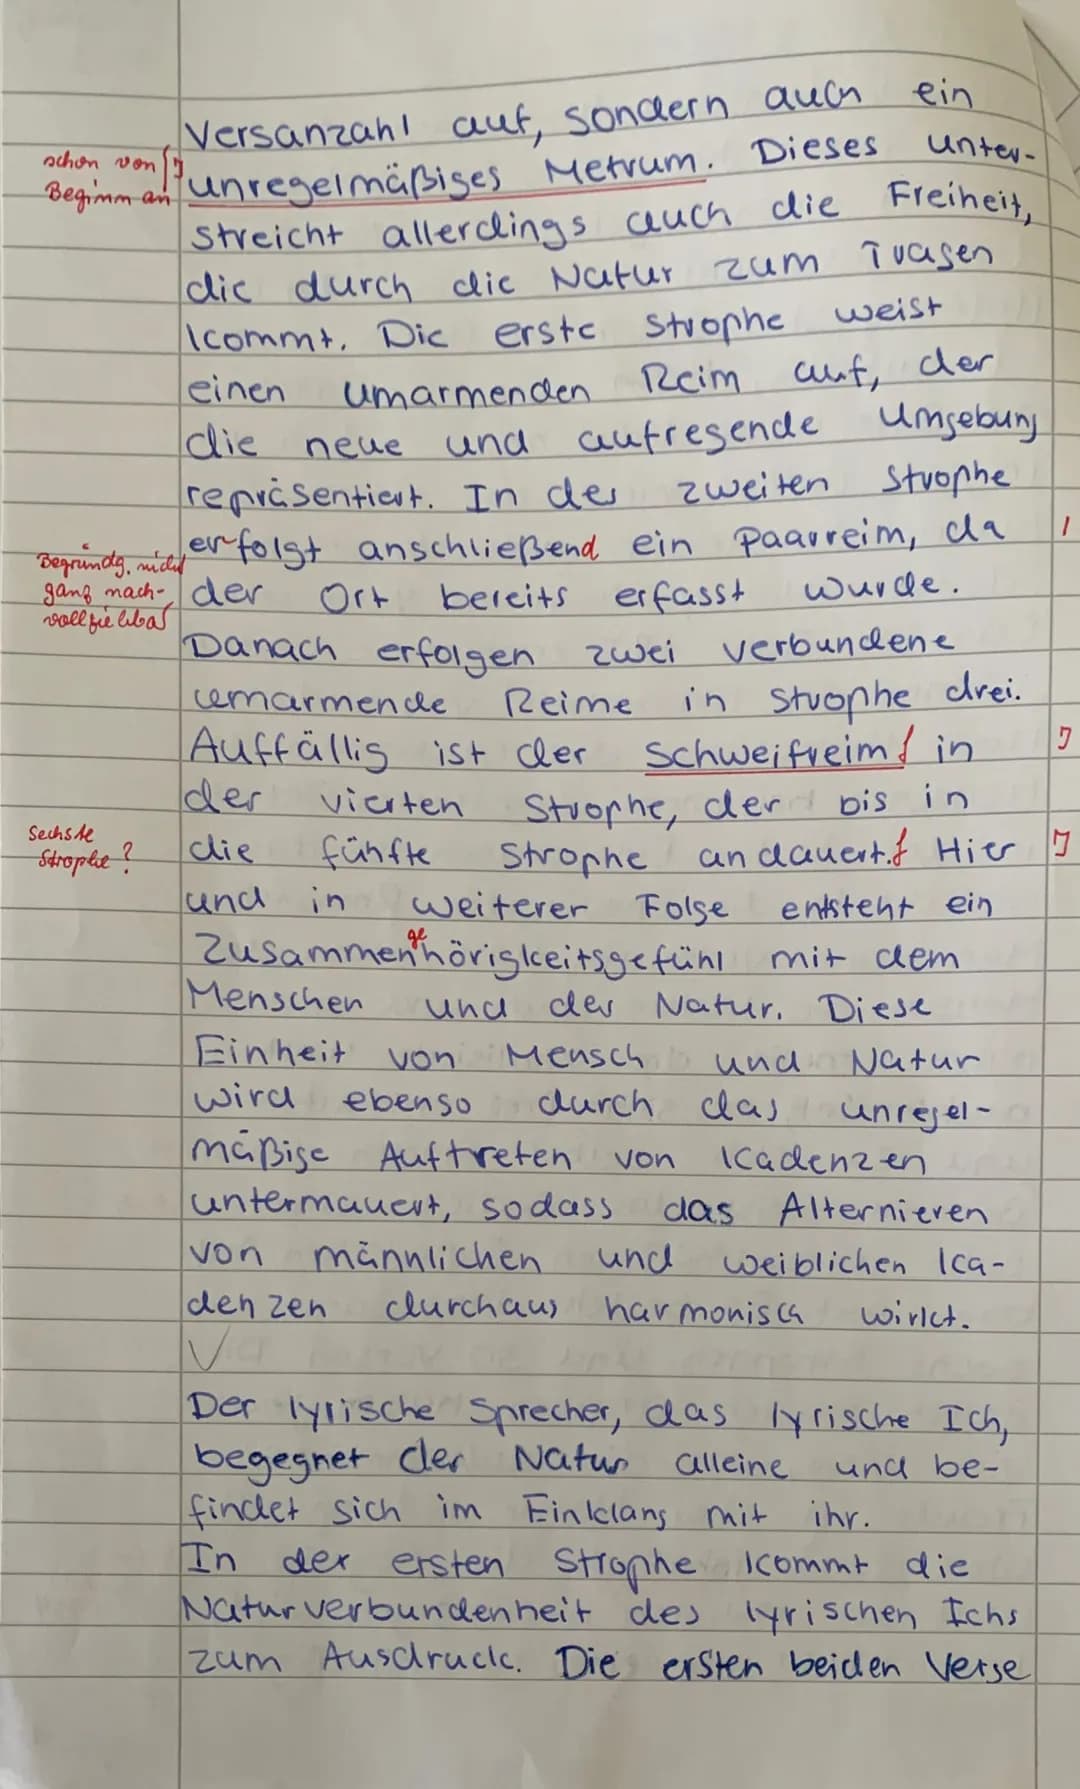 Versanzahl auf, sondern auch ein
schon von
Beginn an
unregelmäßiges Metrum. Dieses unter-
streicht allerdings auch die Freiheit,
die durch die Natur zum Tragen
kommt. Die erste Strophe weist
einen umarmenden Reim auf, der
die neue und aufregende Umgebung
repräsentiert. In der zweiten Strophe
erfolgt anschließend ein Paarreim, da
Begründg. nicht
ganz nach-
vollziehbar
der Ort bereits erfasst wurde.
Danach erfolgen zwei verbundene
umarmende Reime in Strophe drei.
Auffällig ist der Schweifreim in
der vierten Strophe, der bis in
Sechste
Strophe?
die fünfte Strophe andauert. Hier
und in weiterer Folge entsteht ein
ge
Zusammenhörigkeitsgefühl mit dem
Menschen und der Natur. Diese
Einheit von Mensch und Natur
wird ebenso durch das unregel-
mäßige Auftreten von Kadenzen
untermauert, sodass das Alternieren
von männlichen und weiblichen Ka-
denzen durchaus harmonisch wirkt.
Der lyrische Sprecher, das lyrische Ich,
begegnet der Natur alleine und be-
findet sich im Einklang mit ihr.
In der ersten Strophe kommt die
Naturverbundenheit des lyrischen Ichs
zum Ausdruck. Die ersten beiden Verse